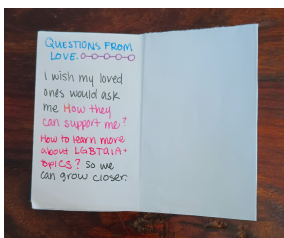 QUESTIONS FROM
LOVE.
I wish my loved
ones would ask
me How they
can support me?
How to learn more
about LGBTQIA+
topics? So we
can grow closer.